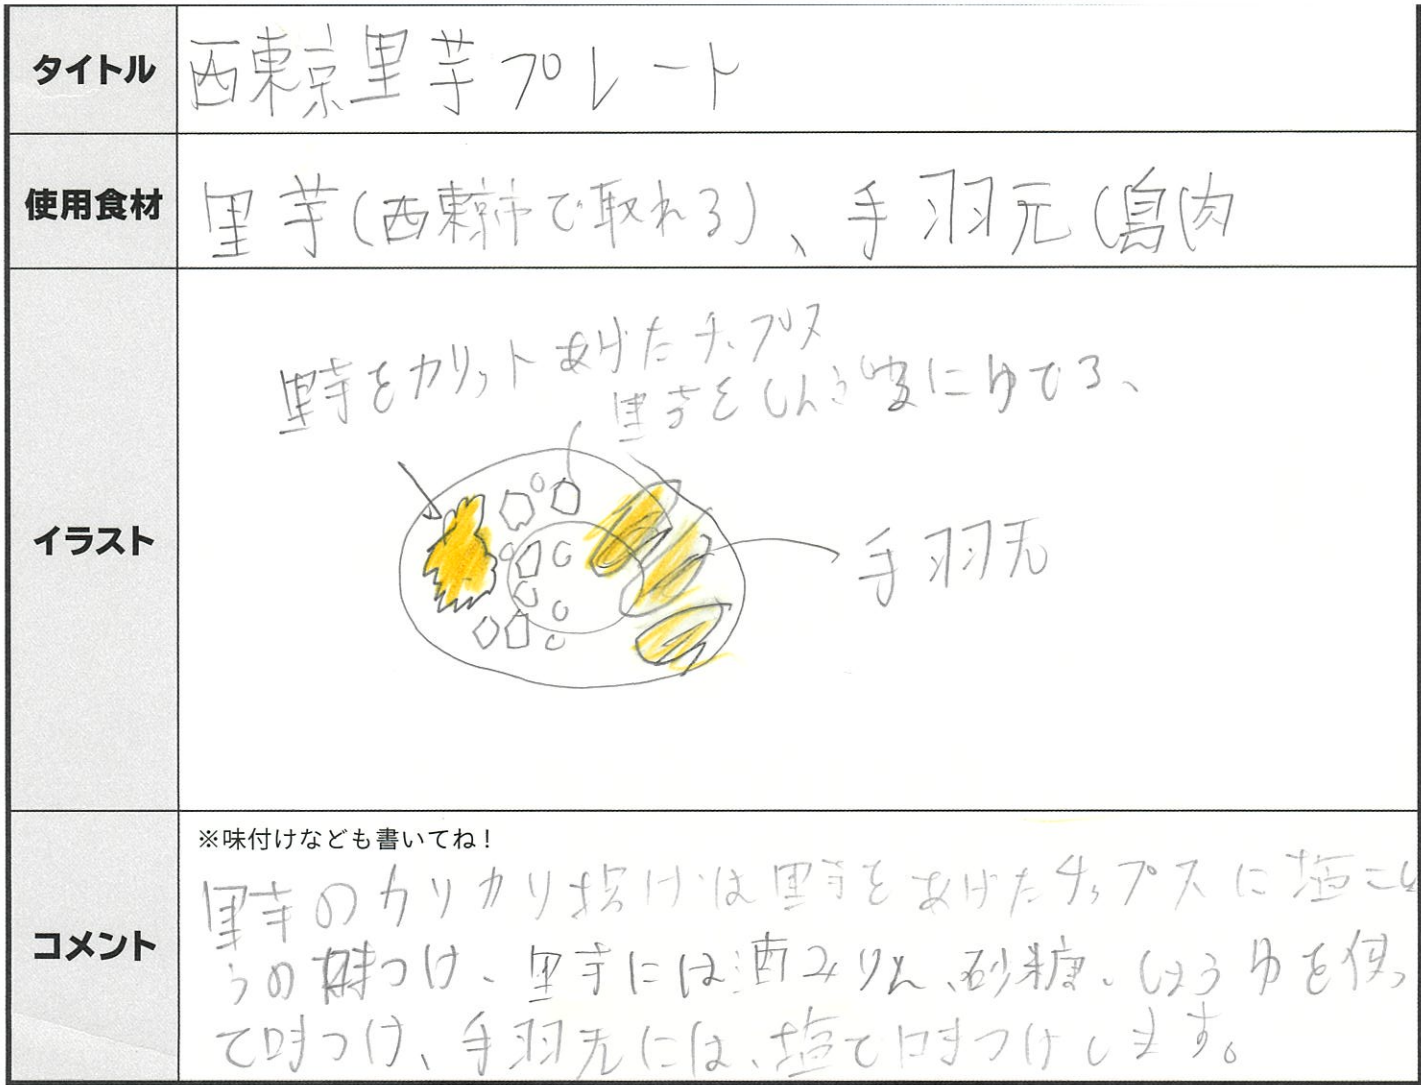 タイトル
西東京里芋プレート
使用食材
里芋(西東京市で取れる)、手羽元(鳥肉
イラスト
里芋をカリットあげたチップス
里芋を にゆでる、
手羽元
コメント
※味付けなども書いてね！
里芋のカリカリ揚げは里芋をあげたチップスに塩こしょ
うの味つけ、里芋には酒みりん、砂糖、しょうゆを使っ
て味つけ、手羽元には、塩で味つけします。